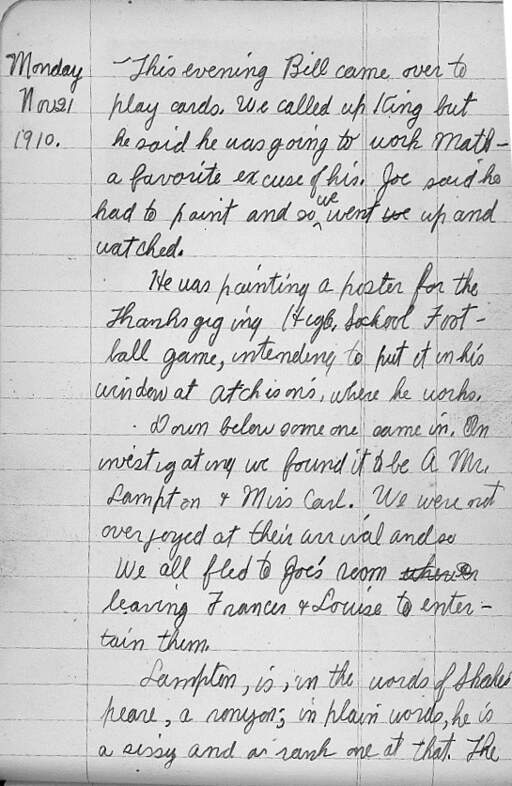 Monday
Nov 21
1910.
This evening Bill came over to
play cards. We called up King but
he said he was going to work Math-
a favorite excuse of his. Joe said he
had to paint and so we went we up and
watched.
He was painting a poster for the
Thanksgiging High School Foot-
ball game, intending to put it in his
window at Atchisons, where he works.
Down below someone came in. On
investigating we found it to be A Mr.
Lampton & Miss Carl. We were not
overjoyed at their arrival and so
We all fled to Joe's room
leaving Frances & Louise to enter-
tain them.
Lampton, is, in the words of Shakes
peare, a ronyon; in plain words, he is
a sissy and a rank one at that. The